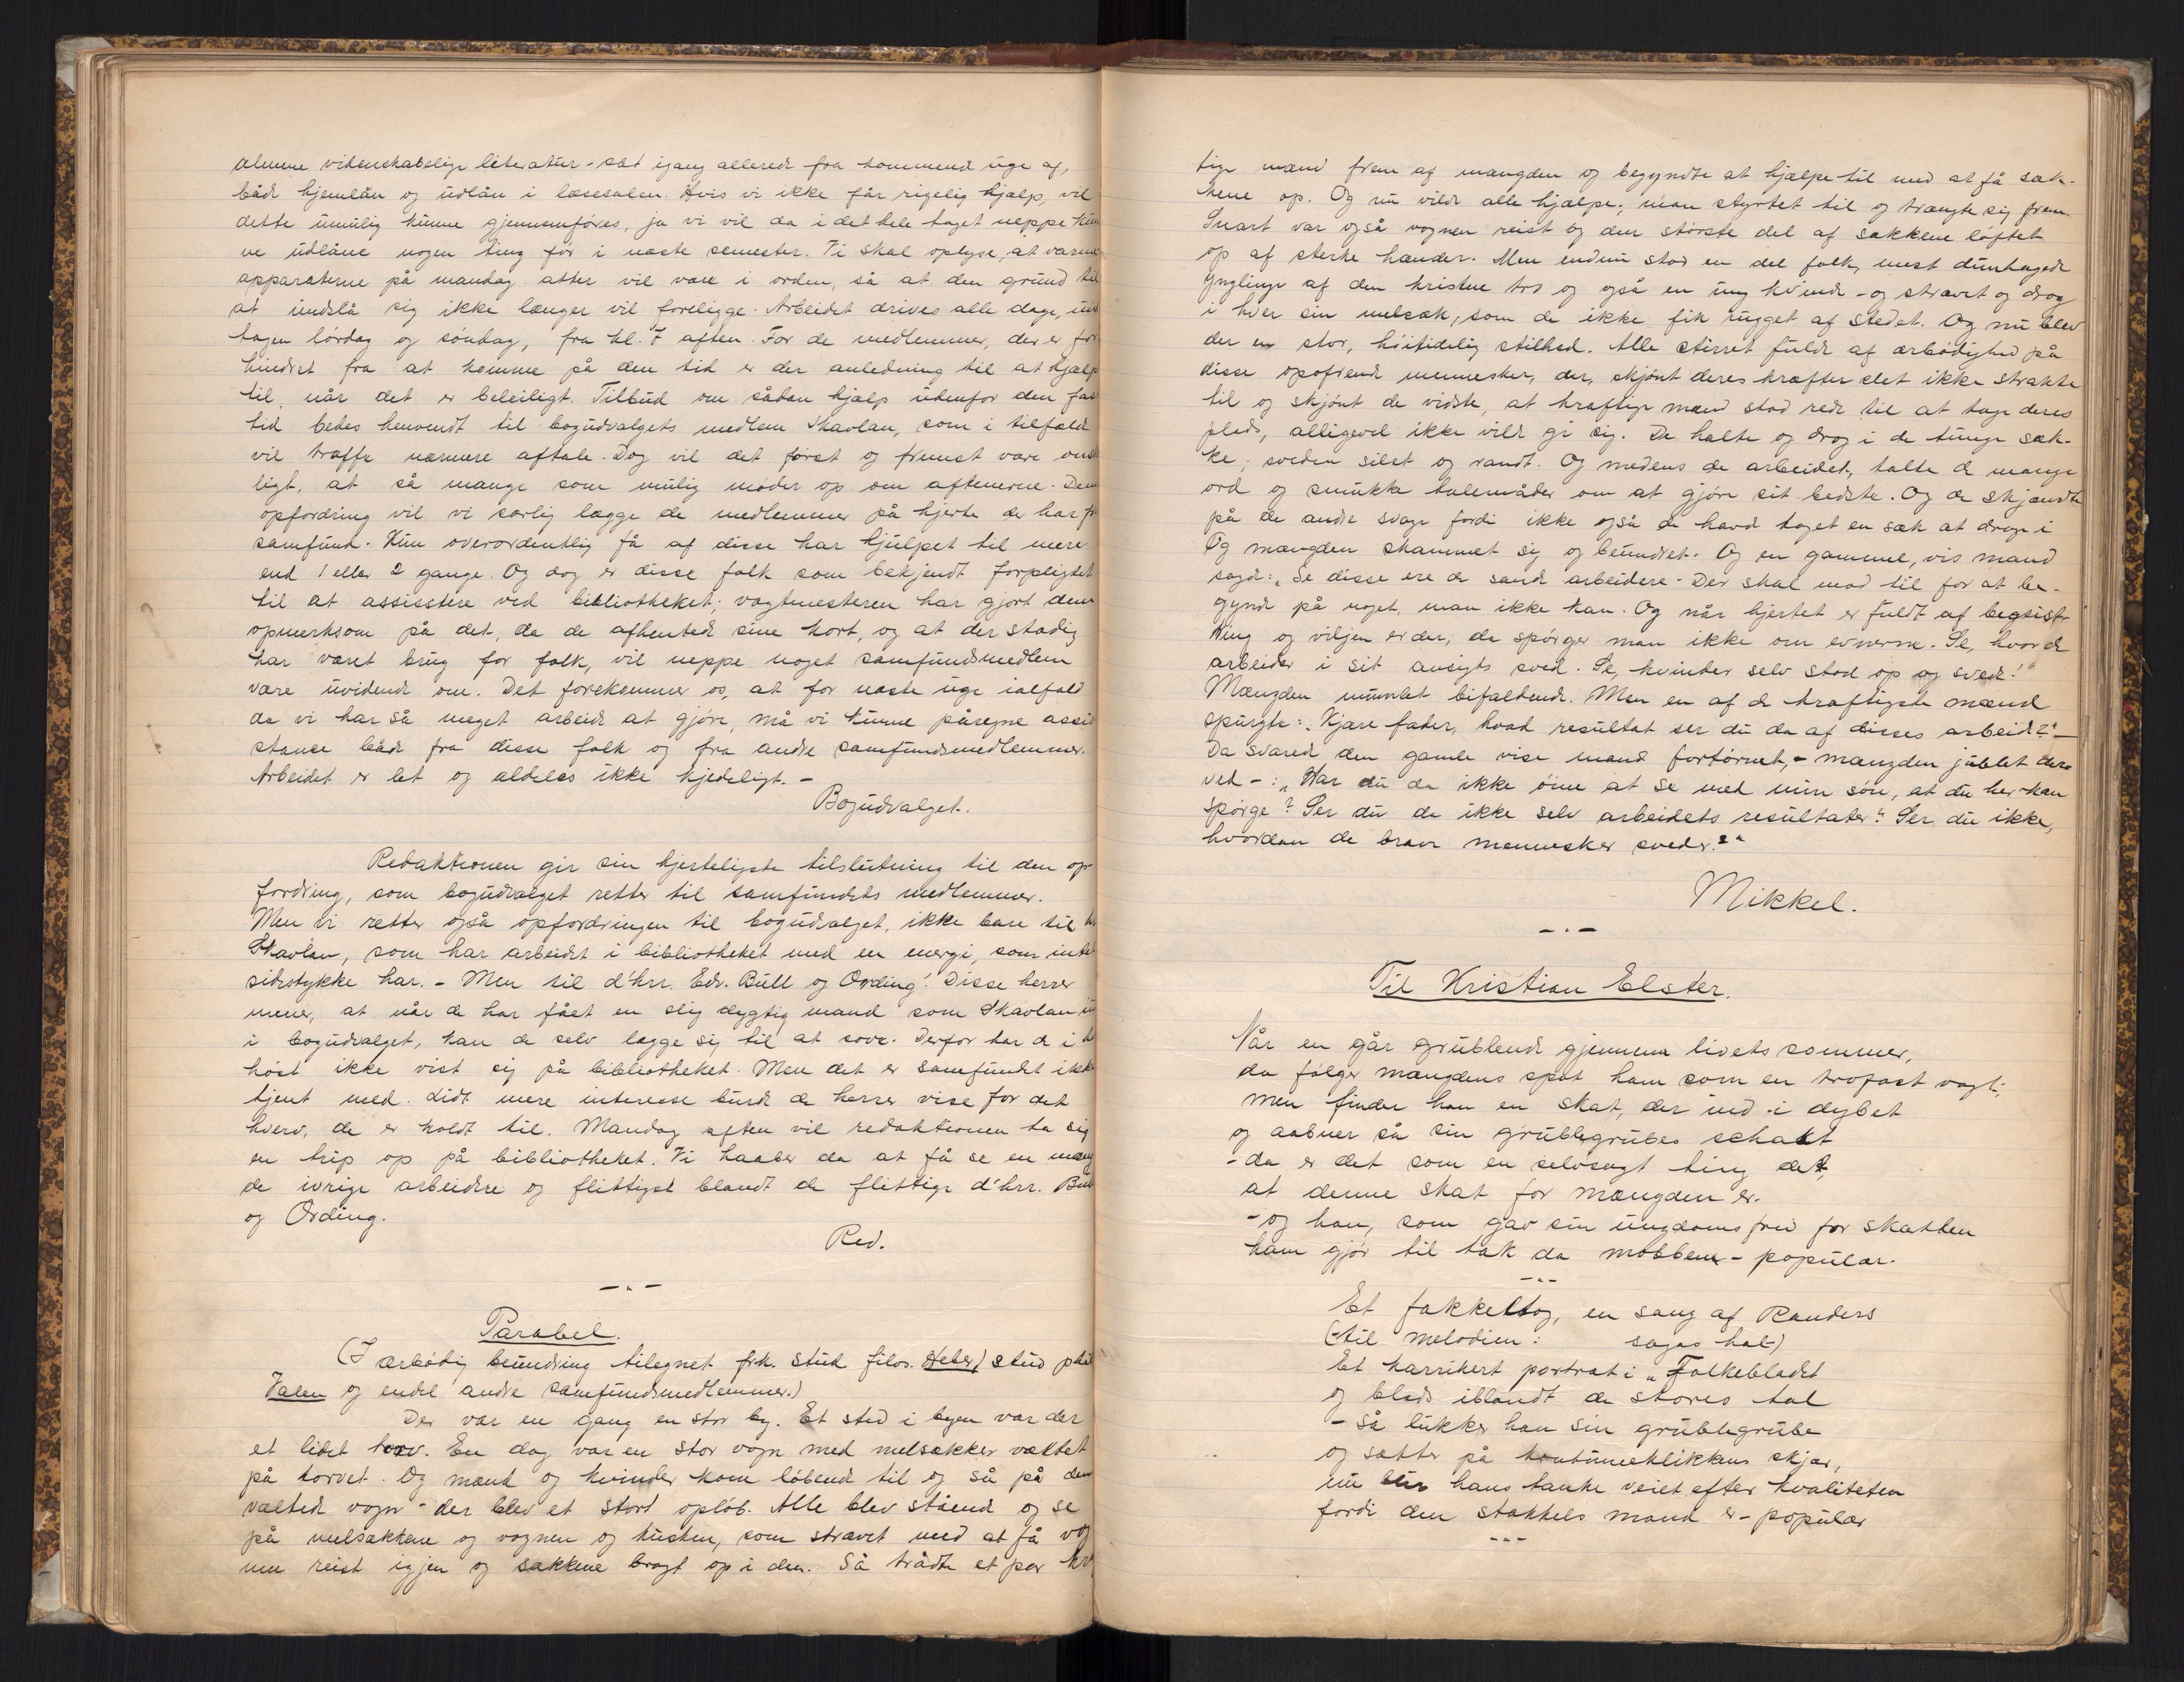 almene videnskabelige literatur - sat igang allerede fra kommende uge af,
både hjemlån og udlån i læsesalen. Hvis vi ikke får rigelig hjælp, vil
dette umulig kunne gjennemføres, ja vi vil da i det hele taget neppe kun
ne udlåne nogen ting før i næste semester. Vi skal oplyse, at varme
apparaterne på mandag atter vil være i orden, så at den grund til
at undslå sig ikke længer vil foreligge. Arbeidet drives alle dage, und
tagen lørdag og søndag, fra kl. 7 aften. For de medlemmer, der er for
hindret fra at komme på den tid er der anledning til at hjælp
til, når det er beleiligt. Tilbud om sådan hjælp udenfor den fas
tid bedes henvendt til bogudvalgets medlem Skavlan, som i tilfælde
vil træffe nærmere aftale. Dog vil det først og fremst være ønsk
ligt, at så mange som mulig møder op om aftenerne. Den
opfordring vil vi særlig lægge de medlemmer på hjerte der har fri
samfund. Kun overordentlig få af disse har hjulpet til mere
end 1 eller 2 gange. Og dog er disse folk som bekjendt forpligtet
til at assisstere ved bibliotheket; vagtmesteren har gjort dem
opmerksom på det, da de afhentede sine kort, og at der stadig
har været brug for folk, vil neppe noget samfundsmedlem
være uvidende om. Det forekommer os, at for næste uge ialfald
da vi har så meget arbeide at gjøre, må vi kunne påregne assi
stance både fra disse folk og fra andre samfundsmedlemmer.
Arbeidet er let og aldeles ikke kjedeligt. -
Bogudvalget.
Redaktionen gir sin hjerteligste tilslutning til den op-
fordring, som bogudvalget retter til samfundets medlemmer.
Men vi retter også opfordringen til bogudvalget, ikke bare til hr
Skavlan, som har arbeidet i bibliotheket med en energi, som intet
sidestykke har. - Men til d'hrr. Edv. Bull og Ording! Disse herrer
mener, at når de har fået en slig dygtig mand som Skavlan in
i bogudvalget, kan de selv lægge sig til at sove. Derfor har de i
høst ikke vist sig på bibliotheket. Men det er samfundet ikke
tjent med. Lidt mere interesse burde de herrer vise for det
hverv, de er holdt til. Mandag aften vil redaktionen ta sig
en trip op på bibliotheket. Vi haaber da at få se en mæng
de ivrige arbeidere og flittigst blandt de flittige d'hrr. Bul
og Ording.
Red.
- " -
Parabel.
(I ærbødig beundring tilegnet frk. stud filos. Heber) stud phil
Valen og endel andre samfundsmedlemmer.)
Der var en gang en stor by. Et sted i byen var der
et lidet torv. En dag var en stor vogn med melsækker væltet
på torvet. Og mænd og kvinder kom løbende til og så på den
væltede vogn - der blev et stort opløb. Alle blev stående og se
på melsækkene og vognen og kusken, som strævet med at få vog
nen reist igjen og sækkene bragt op i den. Så trådte et par kr
tige mænd frem af mængden og begyndte at hjælpe til med at få sæk-
kene op. Og nu vilde alle hjælpe; man styrtet til og trængte sig frem.
Snart var også vognen reist og den største del af sækkene løftet
op af sterke hænder. Men endnu stod en del folk, mest dunhagede
ynglinge af den kristne tro og også en ung kvinde - og strævet og drog
i hver sin melsæk, som de ikke fik rugget af stedet. Og nu blev
der en stor, høitidelig stilhed. Alle stirret fulde af ærbødighed på
disse opofrende mennesker, der, skjønt deres kræfter slet ikke strakte
til og skjønt de vidste, at kraftige mænd stod rede til at tage deres
plads, alligevel ikke vilde gi sig. De halte og drog i de tunge sæk-
ke; sveden silet og randt. Og medens de arbeidet, talte de mange
ord og smukke talemåder om at gjøre sit bedste. Og de skjændte
på de andre svage fordi ikke også de havde taget en sæk at drage i
Og mængden skammet sig og beundret. Og en gammel, vis mand
sagde: "Se disse ere de sande arbeidere. Der skal mod til for at be-
gynde på noget, man ikke kan. Og når hjertet er fuldt af begeist-
ring og viljen er der, da spørger man ikke om evnerne. Se, hvor de
arbeider i sit ansigts sved. Se, kvinder selv stod op og sved!"
Mængden mumlet bifaldende. Men en af de kraftigste mænd
spurgte: "Kjære fader, hvad resultat ser du da af disses arbeide?" -
Da svarede den gamle vise mand fortørnet, - mængden jublet der-
ved - : "Har du da ikke øine at se med min søn, at du her kan
spørge? Ser du da ikke selv arbeidets resultater? Ser du ikke,
hvordan de brave mennesker sveder?"
Mikkel.
- . -
Til Kristian Elster.
Når en går grublende gjennem livets sommer,
da følger mængdens spot ham som en trofast vagt;
men finder han en skat, der ind i dybet
og aabner så sin grublegrubes schakt
- da er det som en selvsagt ting det,
at denne skat for mængden er.
- og han, som gav sin ungdoms fred for skatten
ham gjør til tak da mobben - populær.
- " -
Et fakkeltog, en sang af Randers
(til melodien: sagas hal)
Et karrikert portræt i "Folkebladet
og plads iblandt de stores tal
- Så lukker han sin grublegrube
og sætter på skjær,
nu blir hans tanke veiet efter kvaliteten
fordi den stakkels mand er - populær
- - -